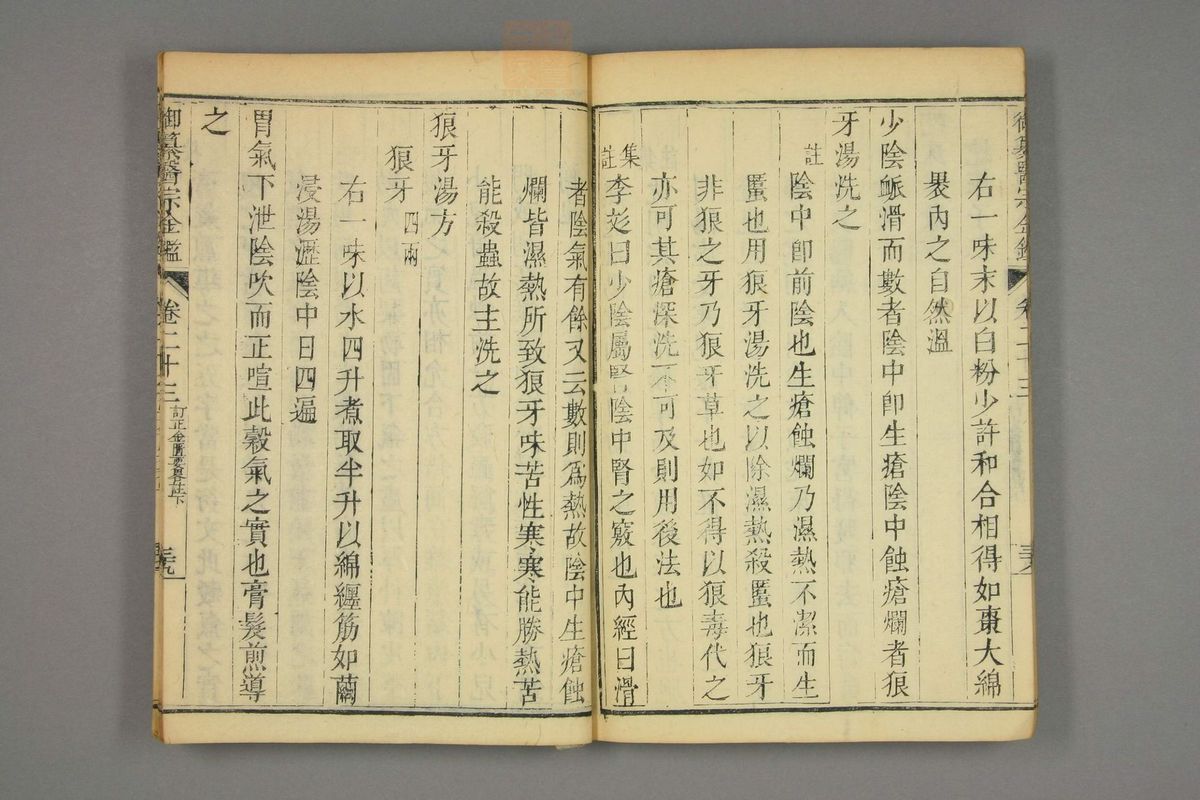 右一味末以白粉少許和合相得如棗大綿
褁內之自然溫
少陰脈滑而數者陰中卽生瘡陰中蝕瘡爛者狼
牙湯洗之
註
陰中卽前陰也生瘡蝕爛乃濕熱不潔而生
䘌也用狼牙湯洗之以除濕熱殺䘌也狼牙
非狼之牙乃狼牙草也如不得以狼毒代之
亦可其瘡深洗不可及則用後法也
集註
李彣曰少陰屬腎陰中腎之竅也內經曰滑
者陰氣有餘又云數則爲熱故陰中生瘡蝕
爛皆濕熱所致狼牙味苦性寒寒能勝熱苦
能殺蟲故主洗之
狼牙湯方
狼牙 四兩
右一味以水四升煮取半升以綿纏筋如繭
浸湯瀝陰中日四遍
胃氣下泄陰吹而正喧此穀氣之實也膏髮煎導
之
御纂醫宗金鑑 卷二十三 訂正金匱要略註下